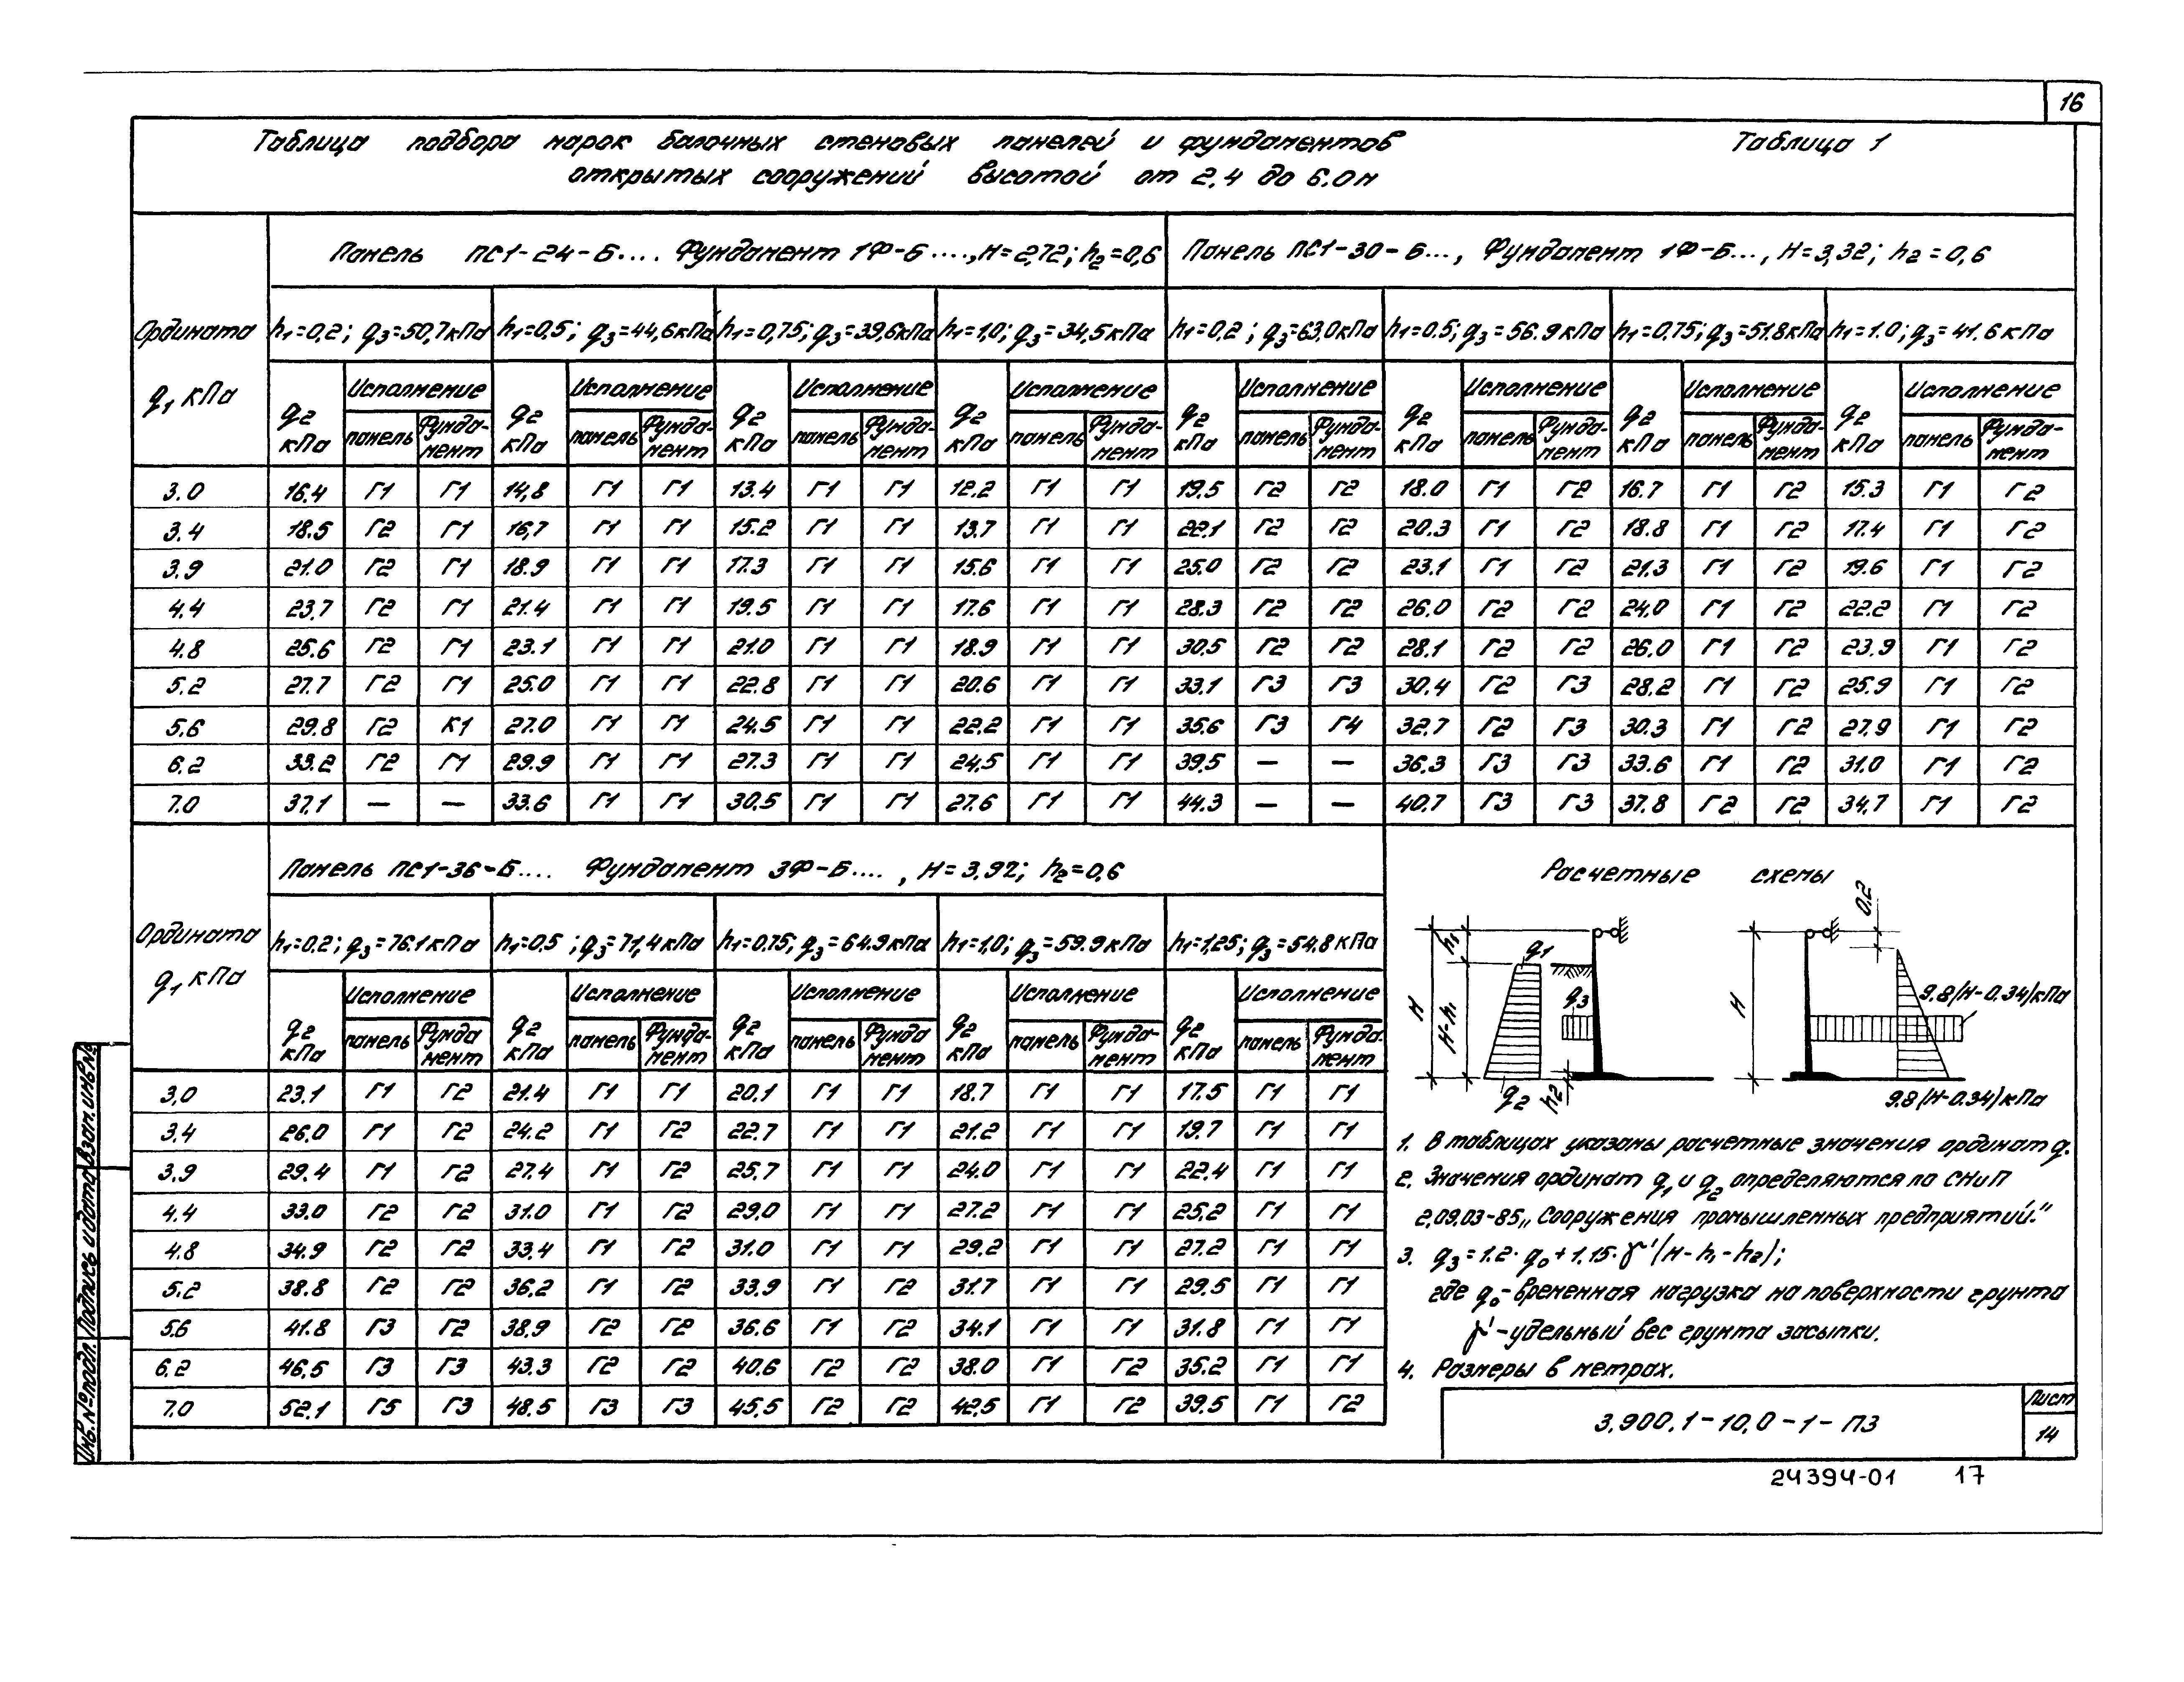 16
Таблица подбора марок балочных стеновых панелей и фундаментов
открытых сооружений высотой от 2,4 до 6.0м
Таблица 1
Ордината q₁ кПа
Панель ПС1-24-Б.... Фундамент 1Ф-Б ....,H=2,72; h₂=0,6
Панель ПС1-30-Б..., Фундамент 1Ф-Б..., H=3,32; h₂=0,6
h₁=0,2; q₃=50,7кПа h₁=0,5; q₃=44,6кПа h₁=0,75; q₃=39,6кПа h₁=1,0; q₃=34,5кПа h₁=0,2; q₃=63,0кПа h₁=0.5; q₃=56.9кПа h₁=0,75; q₃=51.8кПа h₁=1.0; q₃=41.6кПа
q₂ кПа Исполнение панель Фунда-мент q₂ кПа Исполнение панель Фунда-мент q₂ кПа Исполнение панель Фунда-мент q₂ кПа Исполнение панель Фунда-мент q₂ кПа Исполнение панель Фунда-мент q₂ кПа Исполнение панель Фунда-мент q₂ кПа Исполнение панель Фунда-мент q₂ кПа Исполнение панель Фунда-мент
3.0 16.4 Г1 Г1 14,8 Г1 Г1 13.4 Г1 Г1 12.2 Г1 Г1 19.5 Г2 Г2 18.0 Г1 Г2 16.7 Г1 Г2 15.3 Г1 Г2
3.4 18.5 Г2 Г1 16,7 Г1 Г1 15.2 Г1 Г1 13.7 Г1 Г1 22.1 Г2 Г2 20.3 Г1 Г2 18.8 Г1 Г2 17.4 Г1 Г2
3.9 21.0 Г2 Г1 18.9 Г1 Г1 17.3 Г1 Г1 15.6 Г1 Г1 25.0 Г2 Г2 23.1 Г1 Г2 21.3 Г1 Г2 19.6 Г1 Г2
4.4 23.7 Г2 Г1 21.4 Г1 Г1 19.5 Г1 Г1 17.6 Г1 Г1 28.3 Г2 Г2 26.0 Г2 Г2 24.0 Г1 Г2 22.2 Г1 Г2
4.8 25.6 Г2 Г1 23.1 Г1 Г1 21.0 Г1 Г1 18.9 Г1 Г1 30.5 Г2 Г2 28.1 Г2 Г2 26.0 Г1 Г2 23.9 Г1 Г2
5.2 27.7 Г2 Г1 25.0 Г1 Г1 22.8 Г1 Г1 20.6 Г1 Г1 33.1 Г3 Г3 30.4 Г2 Г3 28.2 Г1 Г2 25.9 Г1 Г2
5.6 29.8 Г2 К1 27.0 Г1 Г1 24.5 Г1 Г1 22.2 Г1 Г1 35.6 Г3 Г4 32.7 Г2 Г3 30.3 Г1 Г2 27.9 Г1 Г2
6.2 33.2 Г2 Г1 29.9 Г1 Г1 27.3 Г1 Г1 24,5 Г1 Г1 39,5 — — 36,3 Г3 Г3 33.6 Г1 Г2 31.0 Г1 Г2
7.0 37.1 — — 33.6 Г1 Г1 30.5 Г1 Г1 27.6 Г1 Г1 44.3 — — 40.7 Г3 Г3 37.8 Г2 Г2 34,7 Г1 Г2
Ордината q₁ кПа
Панель ПС1-36-Б.... Фундамент 3Ф-Б...., H=3,92; h₂=0,6
h₁=0.2; q₃=76.1кПа h₁=0,5; q₃=71,4кПа h₁=0.75; q₃=64.9кПа h₁=1,0; q₃=59.9кПа h₁=1,25; q₃=54.8кПа
q₂ кПа Исполнение панель Фунда мент q₂ кПа Исполнение панель Фунда-мент q₂ кПа Исполнение панель Фунда мент q₂ кПа Исполнение панель Фунда-мент q₂ кПа Исполнение панель Фунда-мент
3,0 23.1 Г1 Г2 21.4 Г1 Г1 20.1 Г1 Г1 18.7 Г1 Г1 17.5 Г1 Г1
3.4 26.0 Г1 Г2 24.2 Г1 Г2 22.7 Г1 Г1 21.2 Г1 Г1 19.7 Г1 Г1
3.9 29.4 Г1 Г2 27.4 Г1 Г2 25.7 Г1 Г1 24.0 Г1 Г1 22.4 Г1 Г1
4.4 33.0 Г2 Г2 31.0 Г1 Г2 29,0 Г1 Г1 27.2 Г1 Г1 25,2 Г1 Г1
4.8 34.9 Г2 Г2 33.4 Г1 Г2 31.0 Г1 Г1 29,2 Г1 Г1 27.2 Г1 Г1
5.2 38.8 Г2 Г2 36,2 Г1 Г2 33,9 Г1 Г2 31.7 Г1 Г1 29.5 Г1 Г1
5.6 41.8 Г3 Г2 38.9 Г2 Г2 36.6 Г1 Г2 34.1 Г1 Г1 31.8 Г1 Г1
6,2 46,5 Г3 Г3 43.3 Г2 Г2 40.6 Г2 Г2 38.0 Г1 Г2 35.2 Г1 Г1
7.0 52.1 Г5 Г3 48.5 Г3 Г3 45,5 Г2 Г2 42,5 Г1 Г2 39.5 Г1 Г2
Расчетные схемы
H h₁ H-h₁ q₁ q₃ q₂ h2
H 0,2 9.8(H-0.34)кПа
9.8(H-0.34)кПа
1. В таблицах указаны расчетные значения ординат q.
2. Значения ординат q₁ и q₂ определяются по СНиП
2.09.03-85„Сооружения промышленных предприятий."
3. q₃=1.2·q₀+1,15·γ'(H-h₁-h₂);
где q₀-временная нагрузка на поверхности грунта
γ'-удельный вес грунта засыпки.
4. Размеры в метрах.
3.900.1-10.0-1-ПЗ
Лист
14
24394-01 17
Инв.№подл. Подпись и дата Взам.инв.№